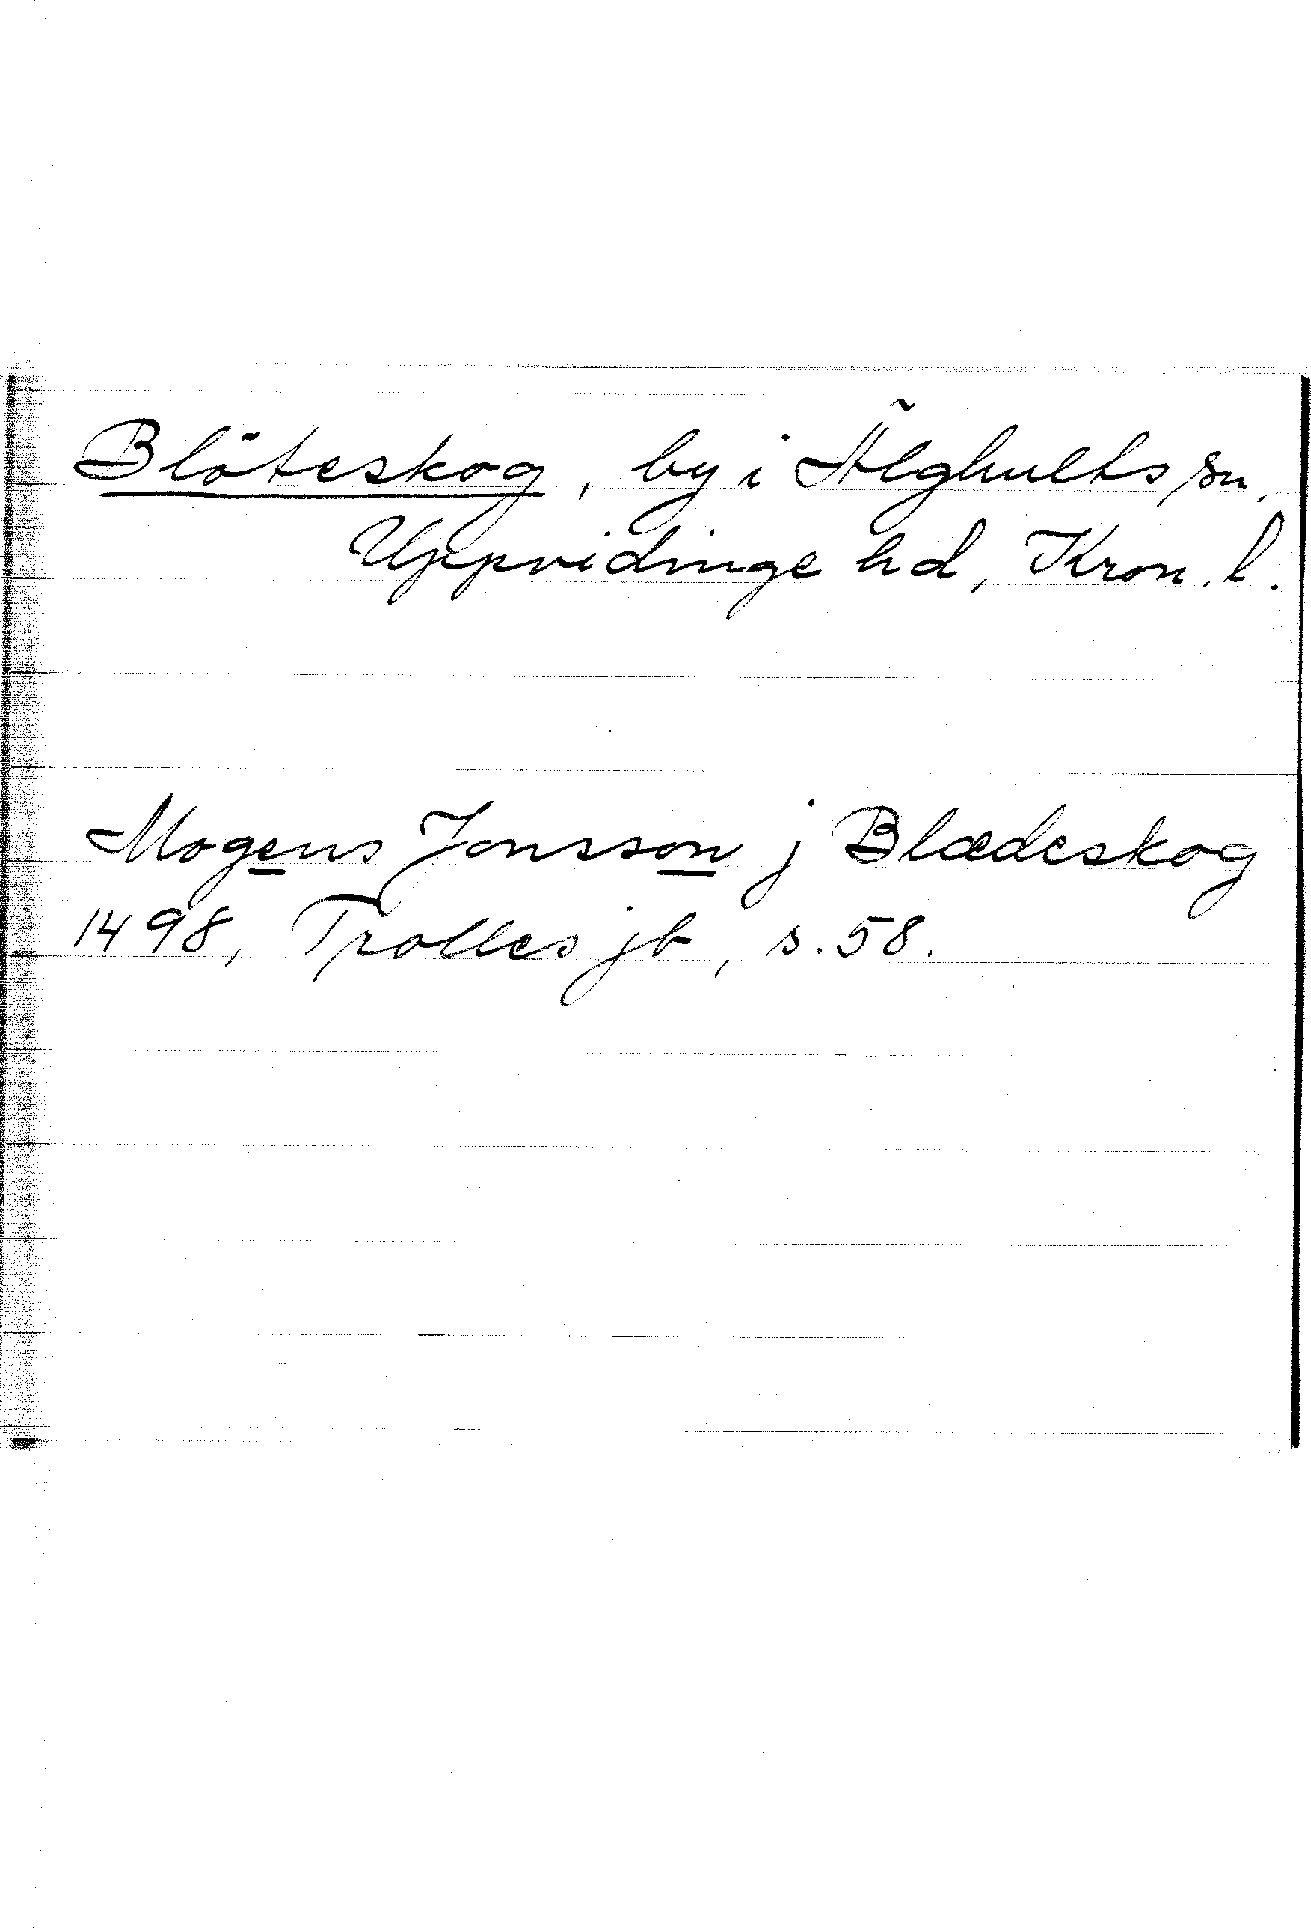 Blöteskog, by i Älghults sn,
Uppvidinge hd, Kron. l.
Mogens Jonsson j Blædeskog
1498, Trolles jb, s. 58.